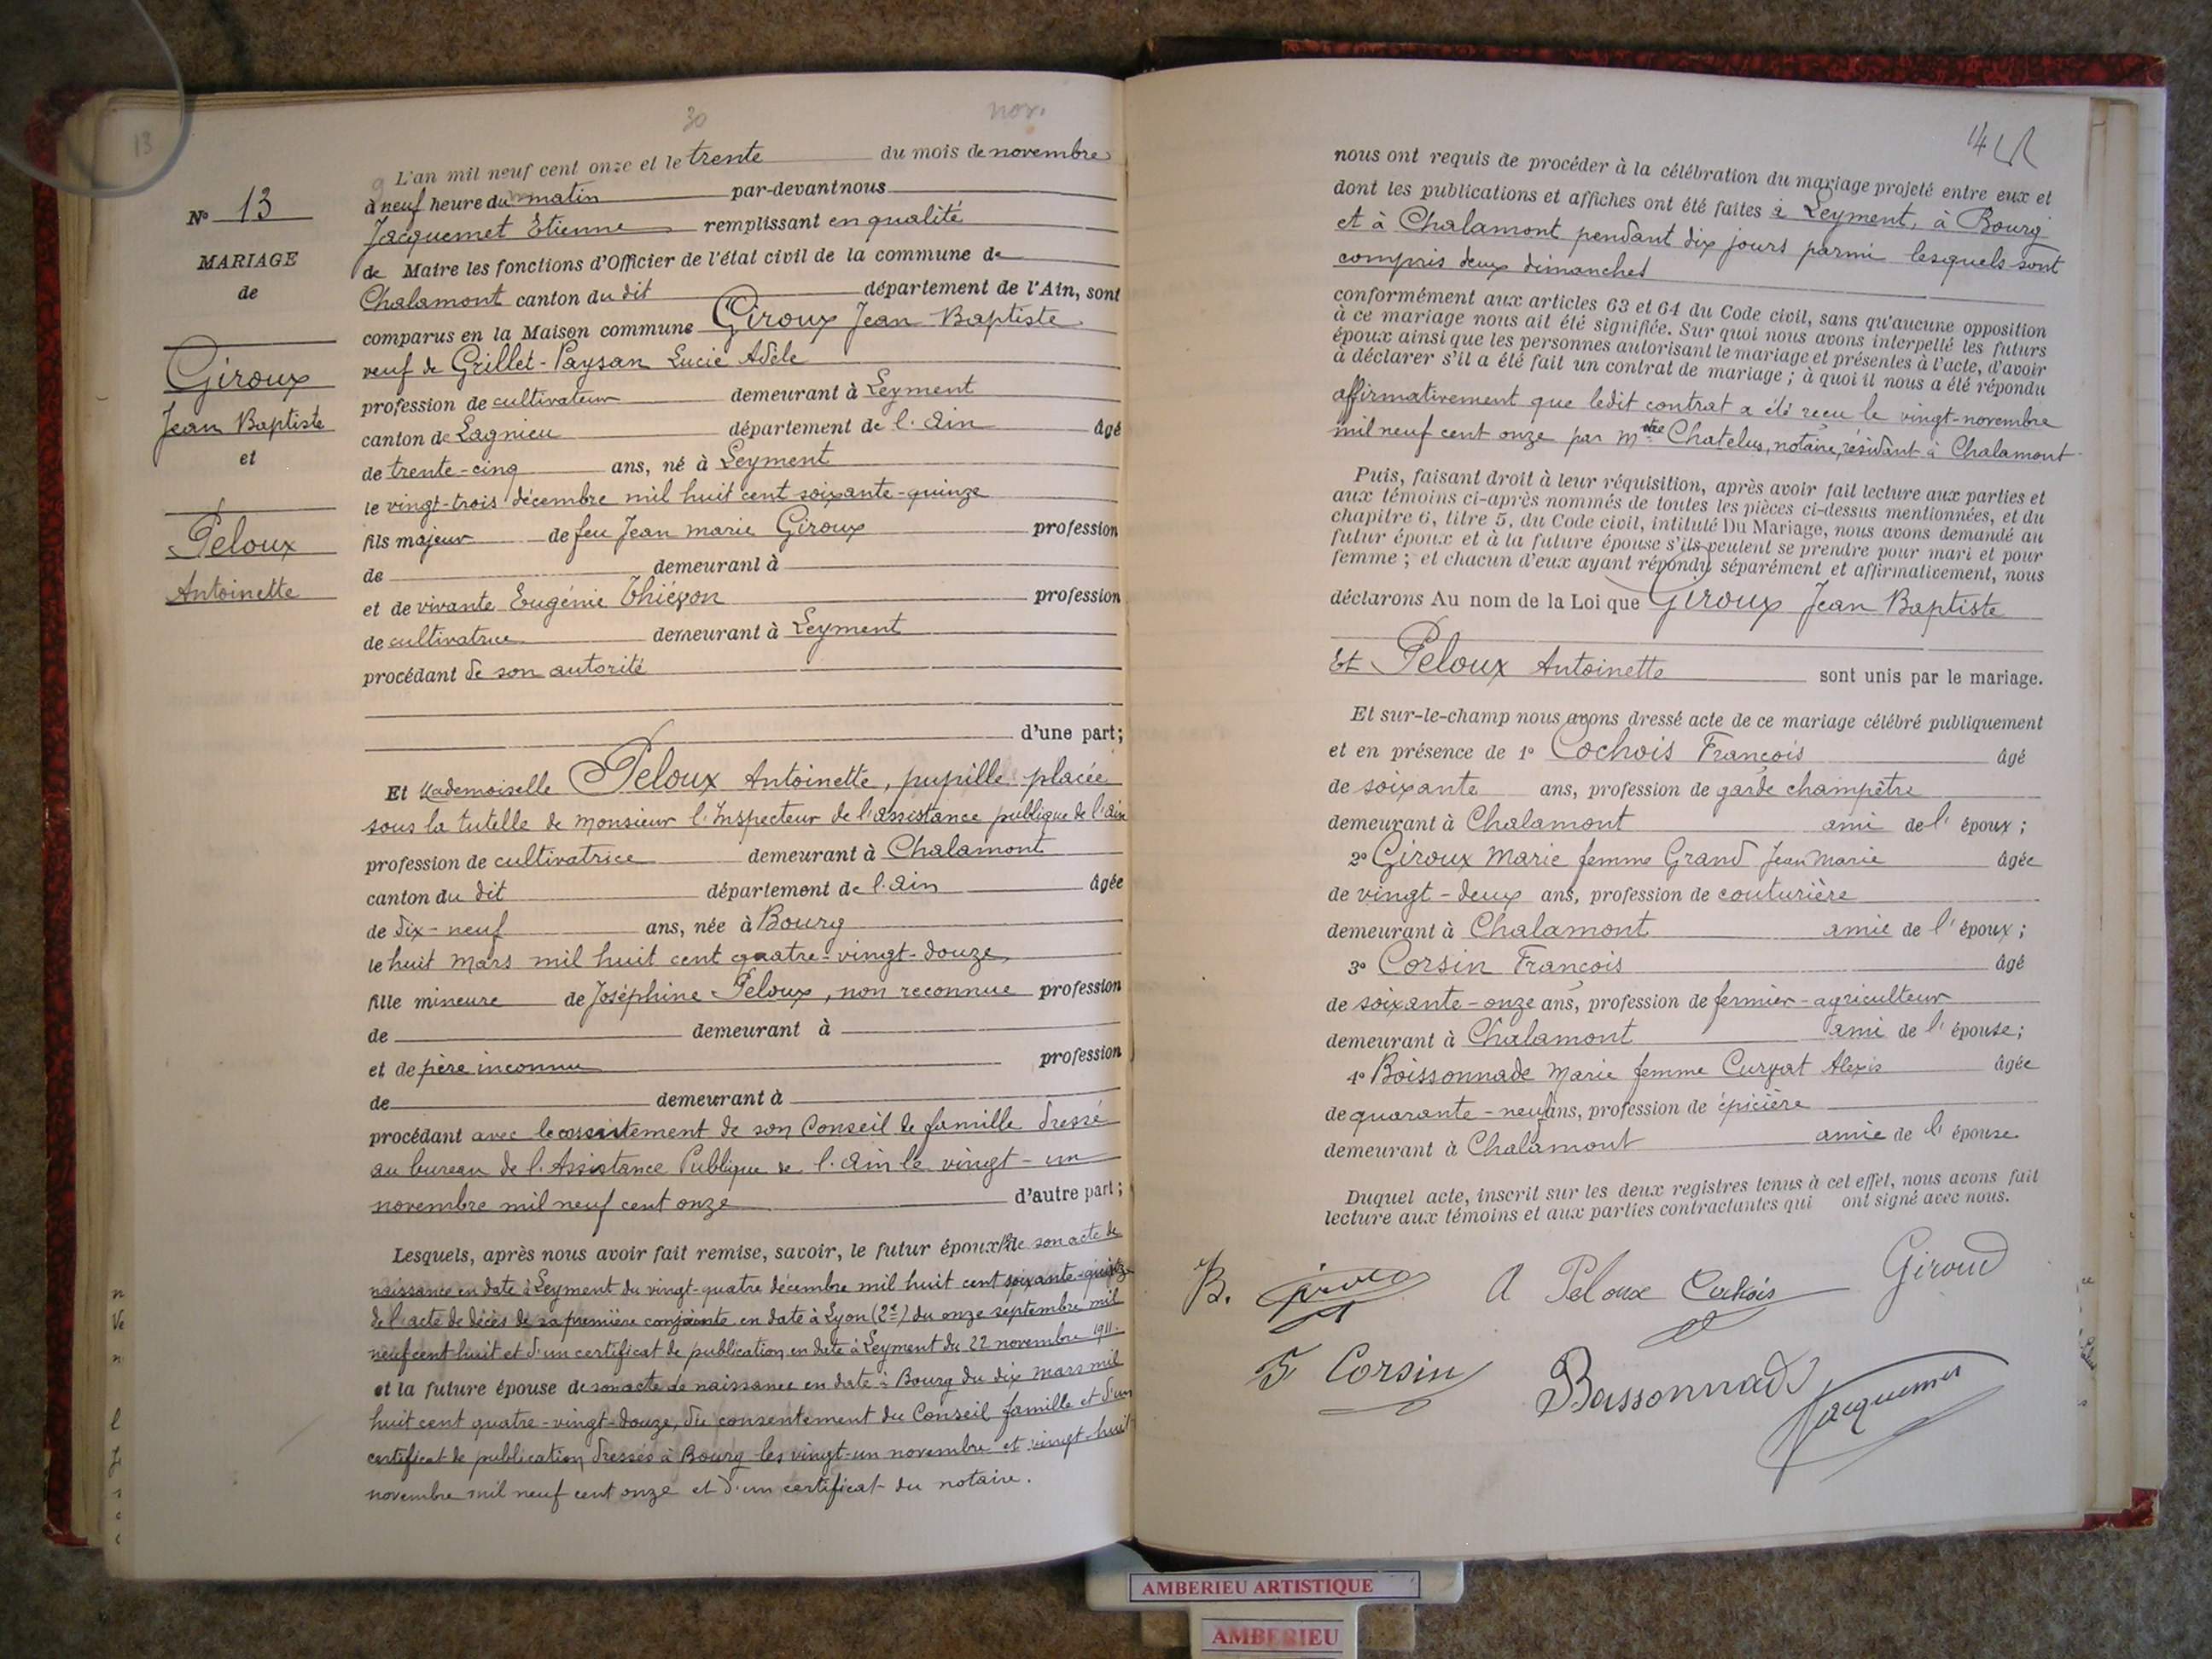 13
30 nov.
L'an mil neuf cent onze et le trente du mois de novembre
à neuf heure du matin par-devant nous
Jacquemet Etienne remplissant en qualité
de Maire les fonctions d'Officier de l'état civil de la commune de
Chalamont canton du dit département de l'Ain, sont
comparus en la Maison commune Giroux Jean Baptiste
veuf de Grillet-Paysan Lucie Adèle
profession de cultivateur demeurant à Leyment
canton de Lagnieu département de l'Ain âgé
de trente-cinq ans, né à Leyment
le vingt-trois décembre mil huit cent soixante-quinze
fils majeur de feu Jean Marie Giroux profession
de demeurant à
et de vivante Eugénie Thiévon profession
de cultivatrice demeurant à Leyment
procédant de son autorité
d'une part;
N° 13
MARIAGE
de
Giroux
Jean Baptiste
et
Peloux
Antoinette
Et Mademoiselle Peloux Antoinette, pupille placée
sous la tutelle de Monsieur l'Inspecteur de l'assistance publique de l'Ain
profession de cultivatrice demeurant à Chalamont
canton du dit département de l'Ain âgée
de dix-neuf ans, née à Bourg
le huit Mars mil huit cent quatre-vingt-douze
fille mineure de Joséphine Peloux, non reconnue profession
de demeurant à
et de père inconnu profession
de demeurant à
procédant avec le consentement de son Conseil de famille dressé
au bureau de l'Assistance Publique de l'Ain le vingt-un
novembre mil neuf cent onze d'autre part;
Lesquels, après nous avoir fait remise, savoir, le futur époux de son acte de
naissance en date à Leyment du vingt-quatre décembre mil huit cent soixante-quinze
de l'acte de décès de sa première conjointe en date à Lyon (2e) du onze septembre mil
neuf cent huit et d'un certificat de publication en date à Leyment du 22 novembre 1911.
et la future épouse de son acte de naissance en date à Bourg du dix mars mil
huit cent quatre-vingt-douze, du consentement du Conseil famille et d'un
certificat de publication dressés à Bourg les vingt-un novembre et vingt-huit
novembre mil neuf cent onze et d'un certificat du notaire.
14
nous ont requis de procéder à la célébration du mariage projeté entre eux et
dont les publications et affiches ont été faites à Leyment, à Bourg
et à Chalamont pendant dix jours parmi lesquels sont
compris deux dimanches
conformément aux articles 63 et 64 du Code civil, sans qu'aucune opposition
à ce mariage nous ait été signifiée. Sur quoi nous avons interpellé les futurs
époux ainsi que les personnes autorisant le mariage et présentes à l'acte, d'avoir
à déclarer s'il a été fait un contrat de mariage ; à quoi il nous a été répondu
affirmativement que ledit contrat a été reçu le vingt-novembre
mil neuf cent onze par Mtre Chatelus, notaire, résidant à Chalamont
Puis, faisant droit à leur réquisition, après avoir fait lecture aux parties et
aux témoins ci-après nommés de toutes les pièces ci-dessus mentionnées, et du
chapitre 6, titre 5, du Code civil, intitulé Du Mariage, nous avons demandé au
futur époux et à la future épouse s'ils veulent se prendre pour mari et pour
femme ; et chacun d'eux ayant répondu séparément et affirmativement, nous
déclarons Au nom de la Loi que Giroux Jean Baptiste
Et Peloux Antoinette sont unis par le mariage.
Et sur-le-champ nous avons dressé acte de ce mariage célébré publiquement
et en présence de 1° Cochois François âgé
de soixante ans, profession de garde champêtre
demeurant à Chalamont ami de l'époux ;
2° Giroux Marie femme Grand Jean Marie âgée
de vingt-deux ans, profession de couturière
demeurant à Chalamont amie de l'époux ;
3° Corsin François âgé
de soixante-onze ans, profession de fermier-agriculteur
demeurant à Chalamont ami de l'épouse;
4° Boissonnade Marie femme Curvat Alexis âgée
de quarante-neuf ans, profession de épicière
demeurant à Chalamont amie de l'épouse
Duquel acte, inscrit sur les deux registres tenus à cet effet, nous avons fait
lecture aux témoins et aux parties contractantes qui ont signé avec nous.
B. A Peloux Cochois Giroud
F Corsin Boissonnade Jacquemet
AMBERIEU ARTISTIQUE
AMBERIEU